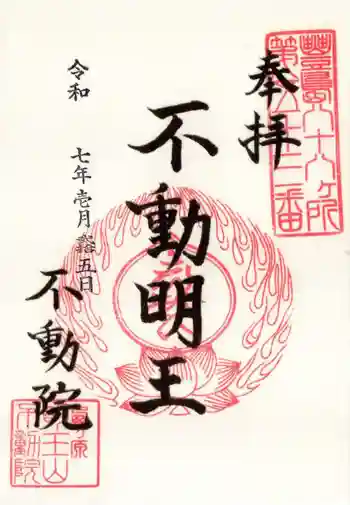 奉拝
豊島八十八ヶ所
第六十二番
不動明王
令和 七年壱月弐拾五日
不動院